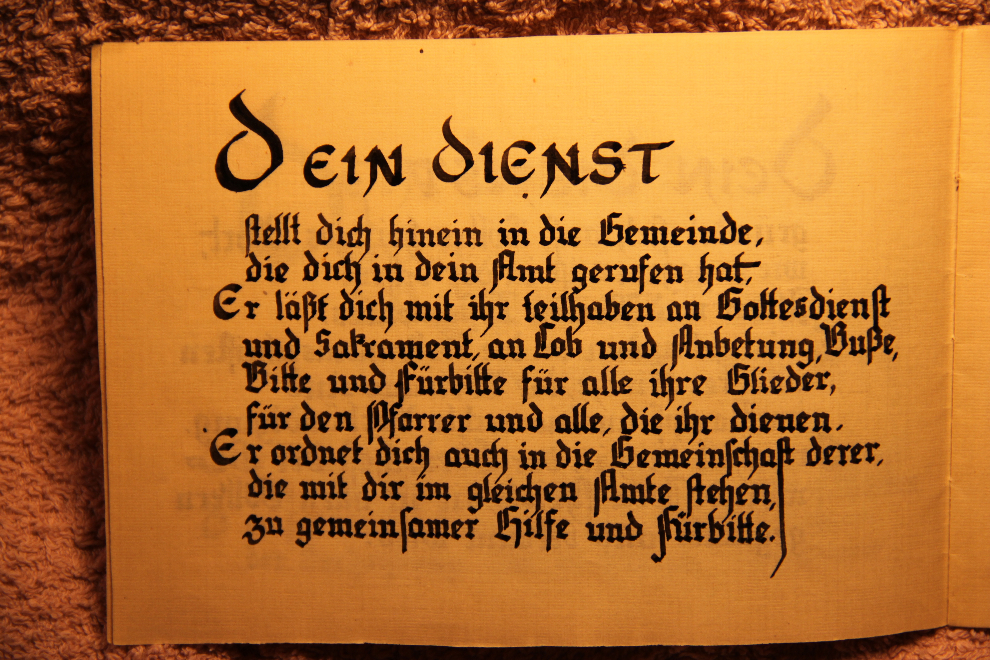 Dein Dienst
stellt dich hinein in die Gemeinde,
die dich in dein Amt gerufen hat,
Er läßt dich mit ihr teilhaben an Gottesdienst
und Sakrament, an Lob und Anbetung, Buße,
Bitte und Fürbitte für alle ihre Glieder,
für den Pfarrer und alle, die ihr dienen.
Er ordnet dich auch in die Gemeinschaft derer,
die mit dir im gleichen Amte stehen,
zu gemeinsamer Hilfe und Fürbitte.